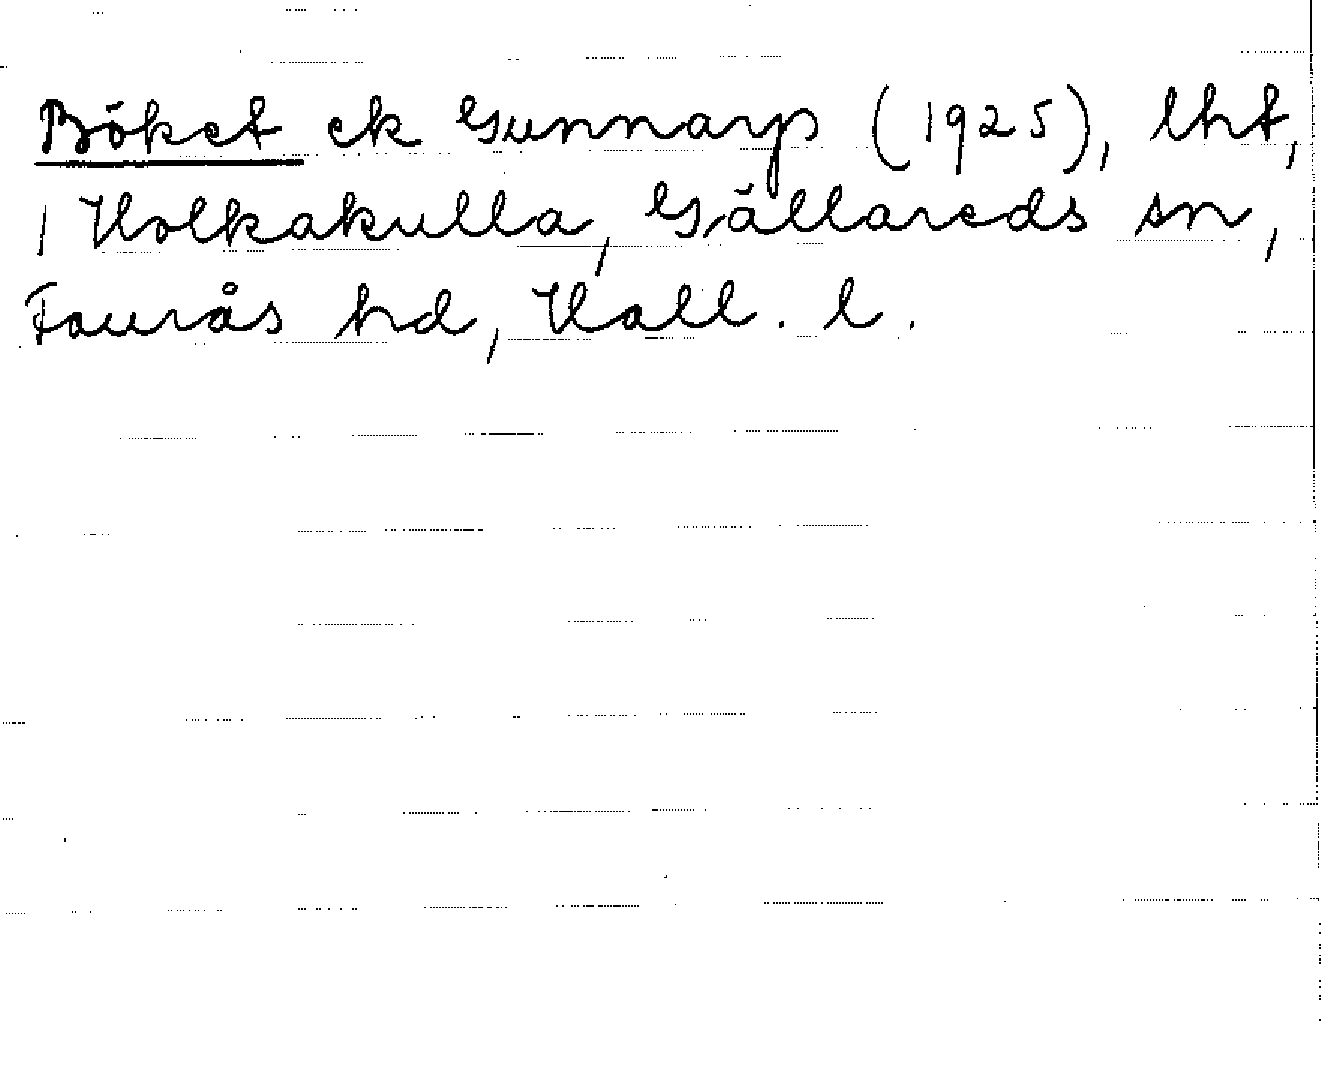 Böket ek Gunnarp (1925), lht,
1 Holkakulla, Gällareds sn,
Faurås hd, Hall. l.